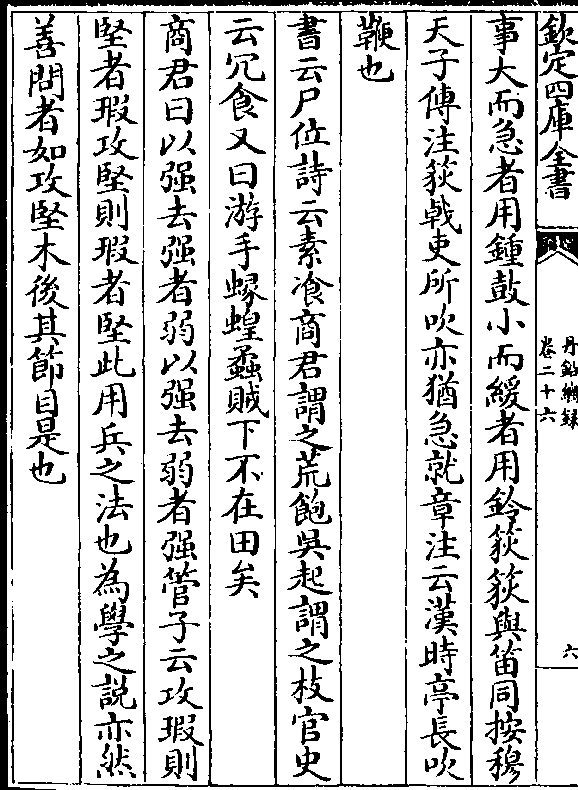 欽定四庫全書
丹鉛續録
卷二十六
六
事大而急者用鍾鼓小而緩者用鈴荻荻與笛同按穆
天子傳注荻戟吏所吹亦猶急就章注云漢時亭長吹
鞭也
書云尸位詩云素飡商君謂之荒飽吳起謂之枝官史
云冗食又曰游手蝝蝗蟊賊下不在田矣
商君曰以强去强者弱以强去弱者强管子云攻瑕則
堅者瑕攻堅則瑕者堅此用兵之法也為學之説亦然
善問者如攻堅木後其節目是也